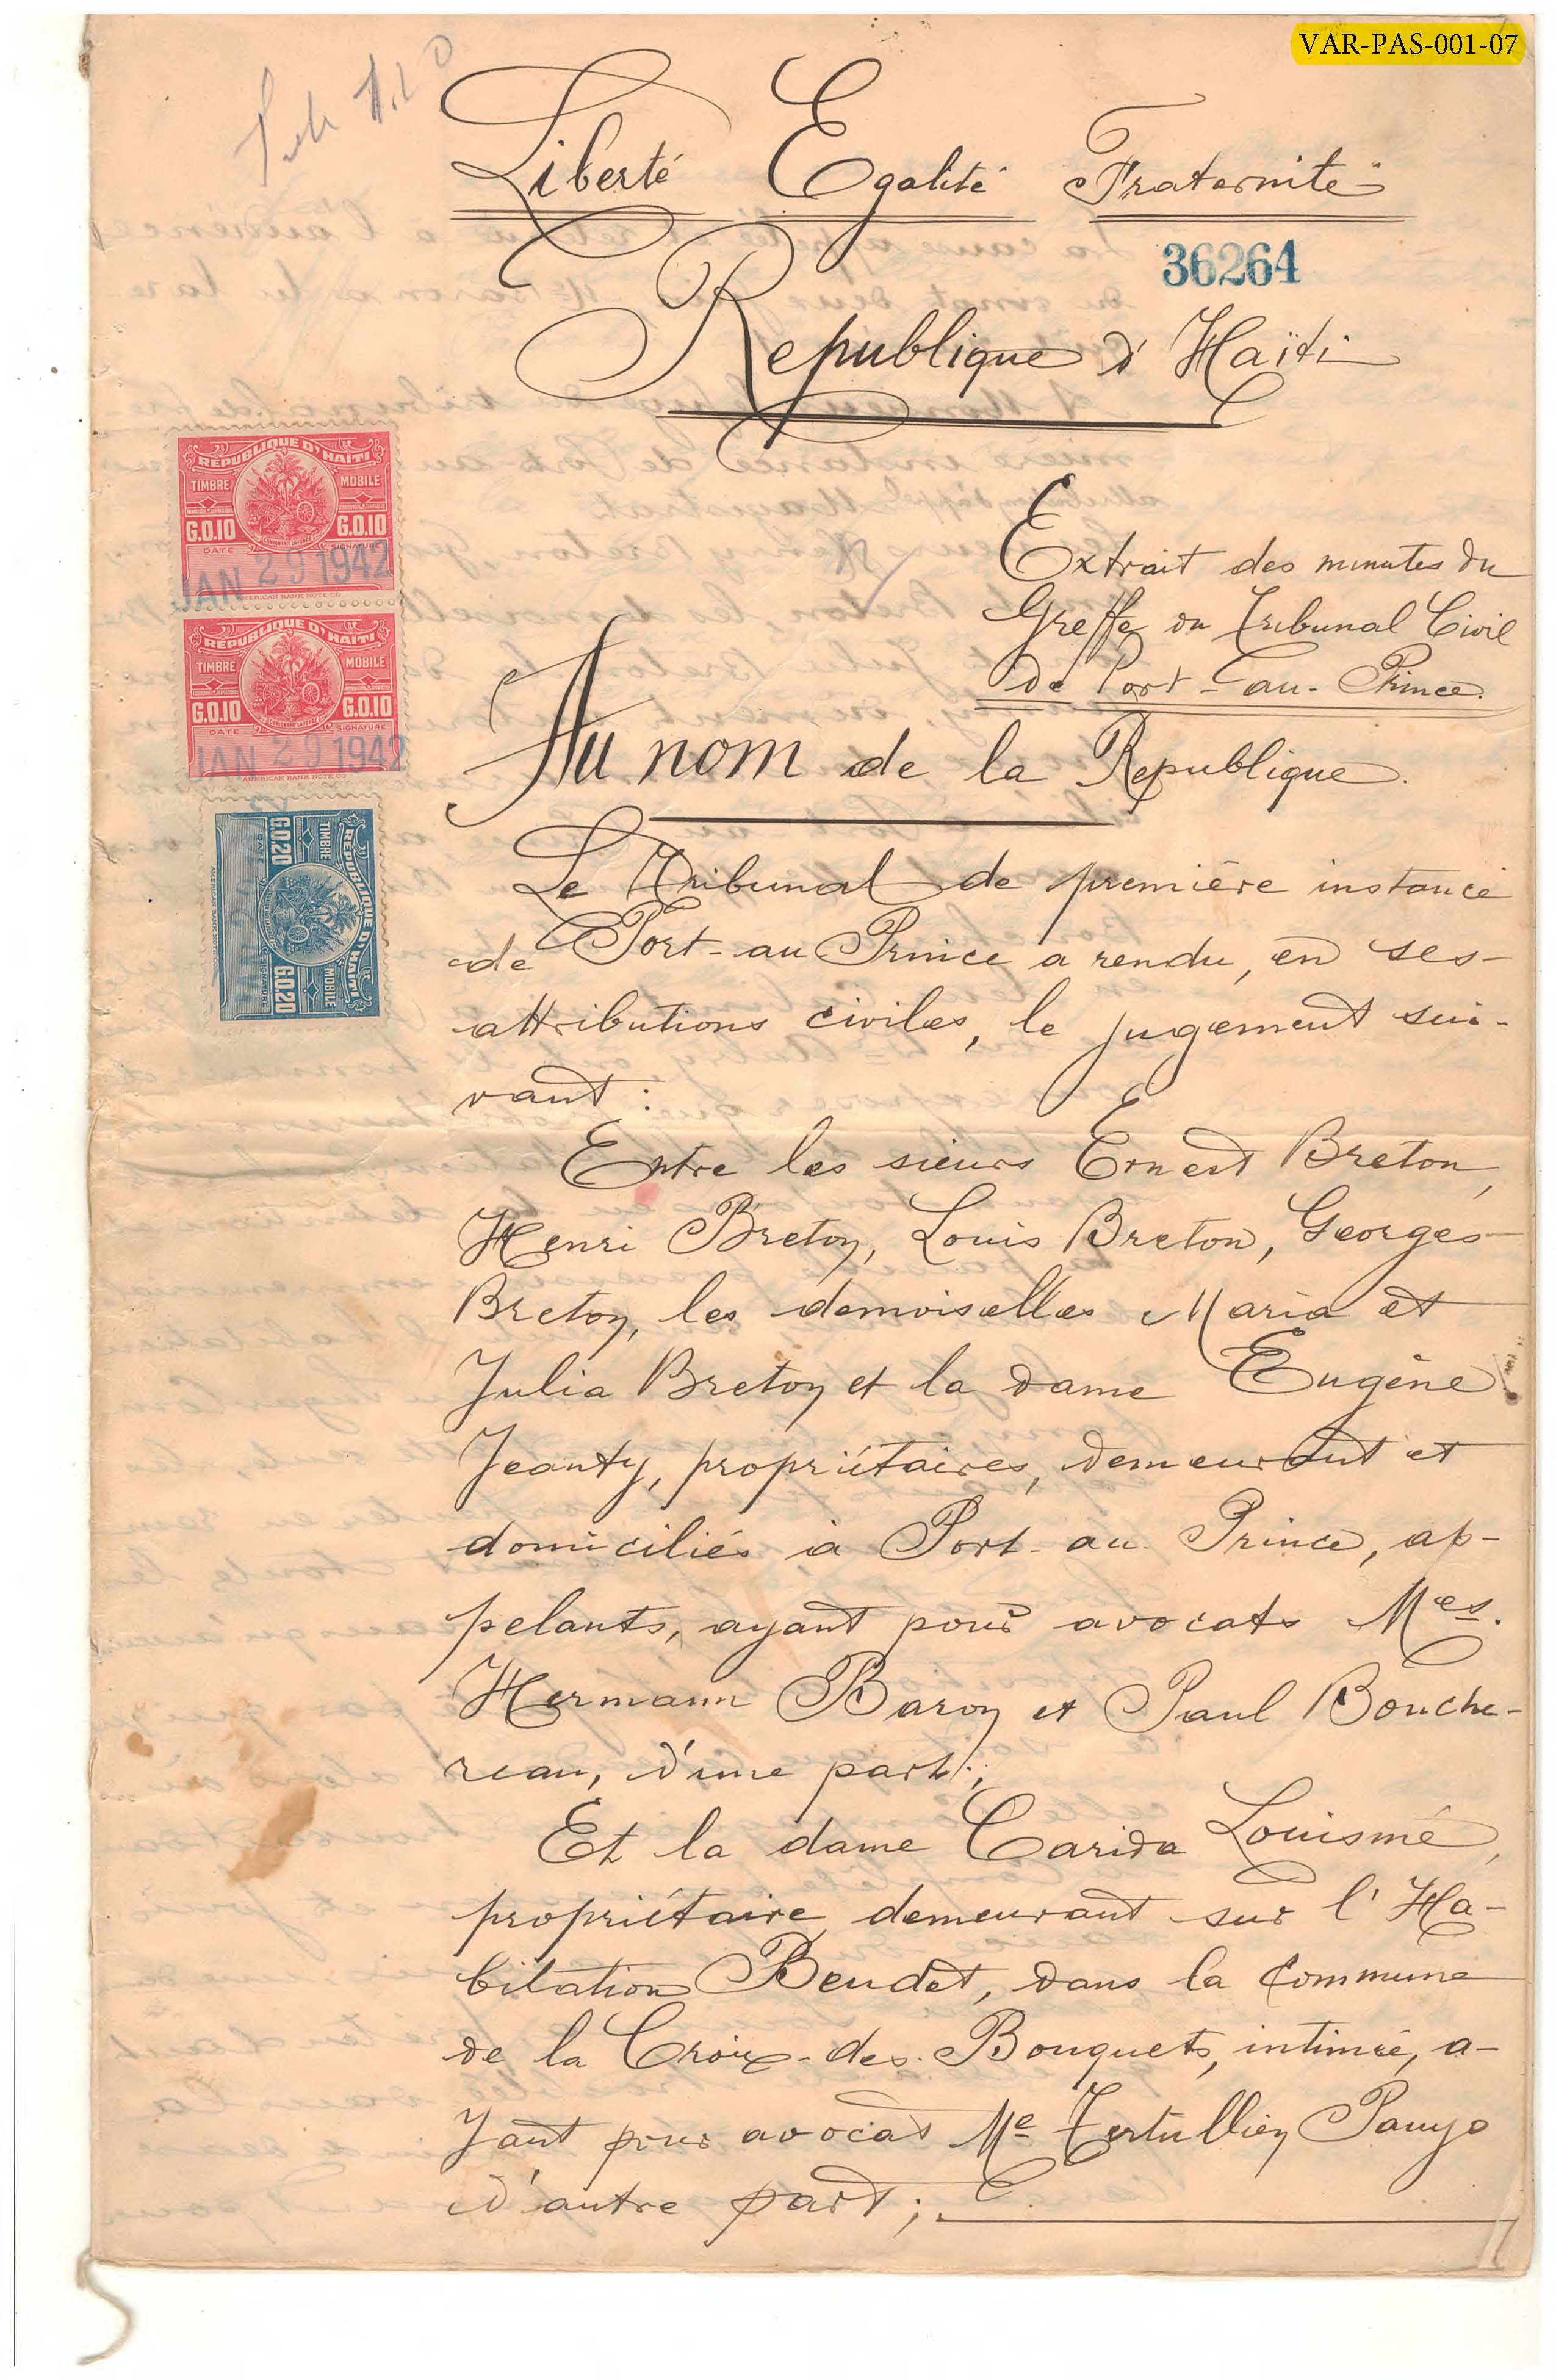 VAR-PAS-001-07
Liberté Egalité Fraternité
36264
Republique d'Haïti
RÉPUBLIQUE D'HAÏTI
TIMBRE MOBILE
G.0.10 G.0.10
DATE SIGNATURE
JAN 29 1942
AMERICAN BANK NOTE CO
RÉPUBLIQUE D'HAÏTI
TIMBRE MOBILE
G.0.10 G.0.10
DATE SIGNATURE
JAN 29 1942
AMERICAN BANK NOTE CO
RÉPUBLIQUE D'HAÏTI
TIMBRE MOBILE
G.0.20 G.0.20
DATE SIGNATURE
Extrait des minutes du
Greffe du Tribunal Civil
de Port-au-Prince.
Au nom de la Republique.
Le Tribunal de première instance
de Port-au Prince a rendu, en ses
attributions civiles, le jugement sui-
vant :
Entre les sieurs Ernest Breton,
Henri Breton, Louis Breton, Georges
Breton, les demoiselles Maria et
Julia Breton et la dame Eugène
Jeanty, propriétaires, demeurant et
domiciliés à Port-au-Prince, ap-
pelants, ayant pour avocats Mes.
Hermann Baron et Paul Bouche-
reau, d'une part;
Et la dame Carida Louismé,
propriétaire demeurant sur l'Ha-
bitation Beudet, dans la Commune
de la Croix-des-Bouquets, intimée, a-
yant pour avocat Me Tertullien
d'autre part;